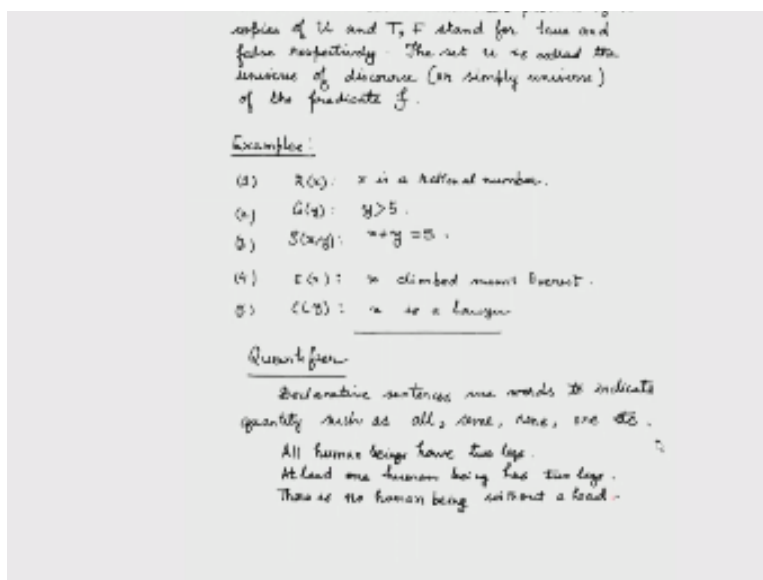 copies of U and T, F stand for true and
false respectively. The set U is called the
universe of discourse (or simply universe)
of the predicate f.
Examples:
(1) R(x): x is a rational number.
(2) G(y): y>5.
(3) S(x,y): x+y=5.
(4) E(x): x climbed mount Everest.
(5) x is a lawyer
Quantifier
Declarative sentences use words to indicate
quantity such as all, some, none, one etc.
All human beings have two legs.
At least one human being has two legs.
There is no human being without a head.